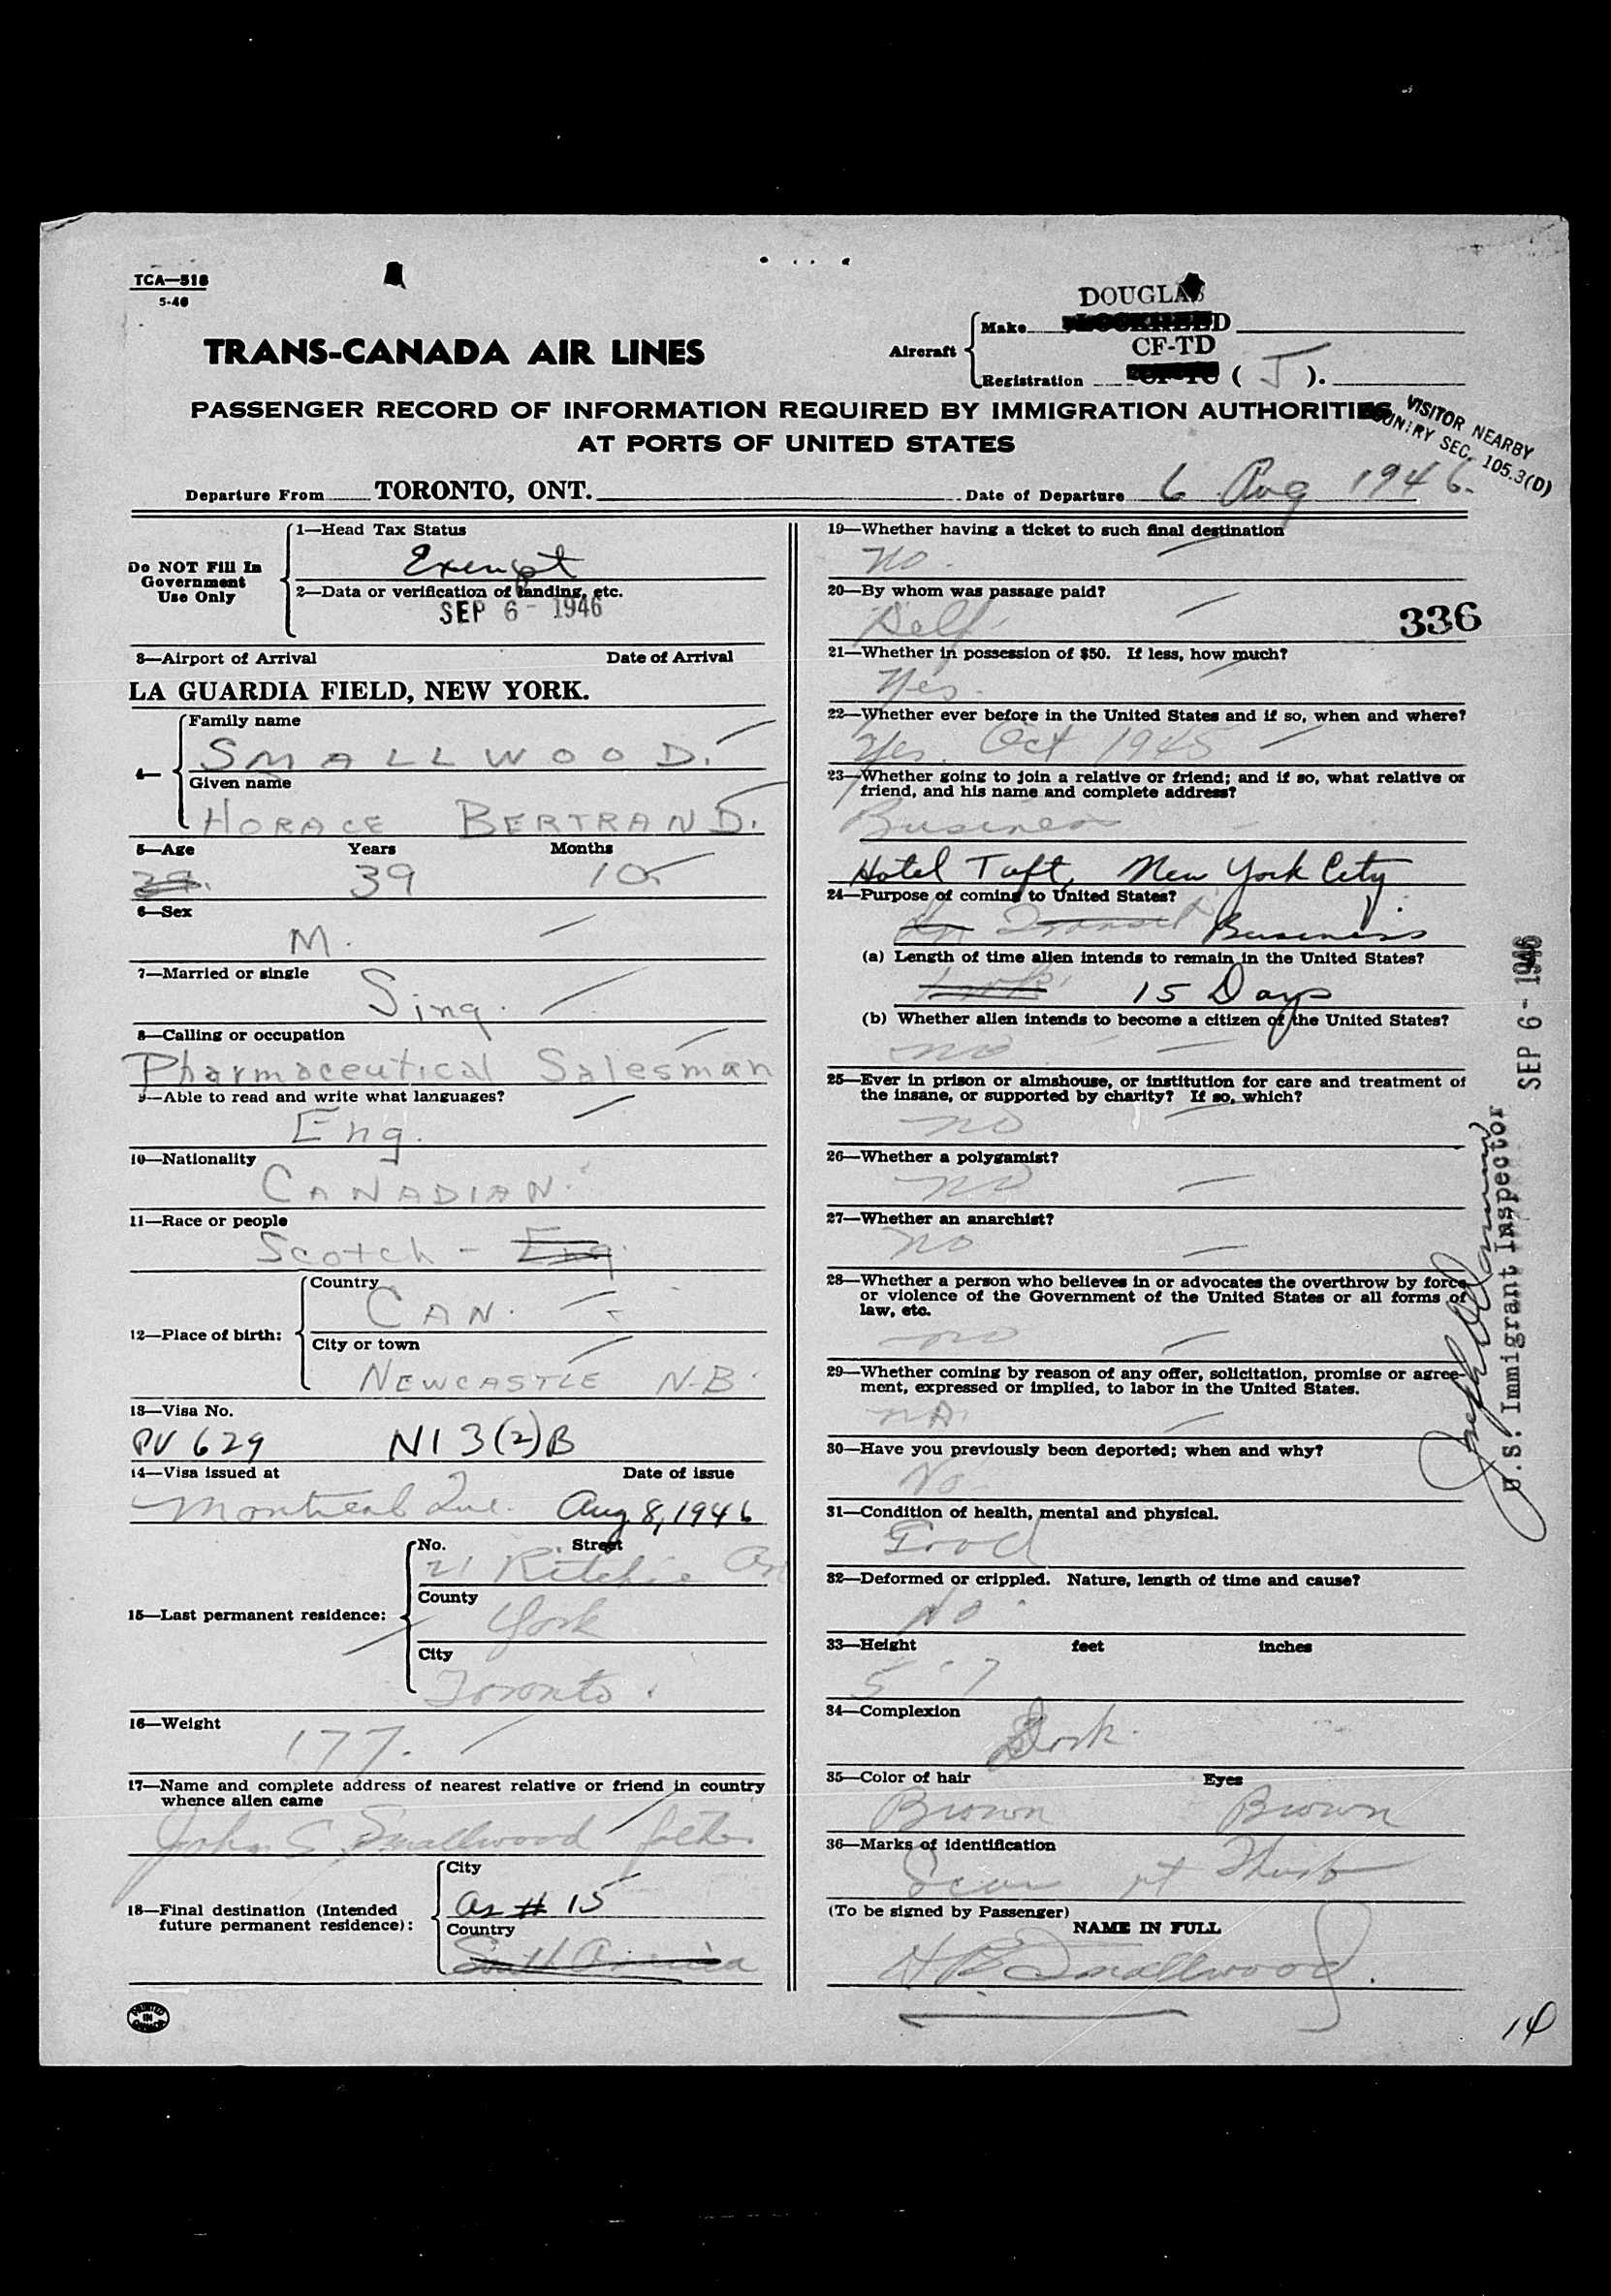 TCA—518
5-46
DOUGLAS
Make
TRANS-CANADA AIR LINES
Aircraft
CF-TD
Registration ( J ).
PASSENGER RECORD OF INFORMATION REQUIRED BY IMMIGRATION AUTHORITIES
AT PORTS OF UNITED STATES
VISITOR NEARBY
COUNTRY SEC. 105.3(D)
Departure From TORONTO, ONT. Date of Departure 6 Aug 1946.
Do NOT Fill In
Government
Use Only
1—Head Tax Status
Exempt
2—Data or verification of landing, etc.
SEP 6 - 1946
3—Airport of Arrival Date of Arrival
LA GUARDIA FIELD, NEW YORK.
4—
Family name
SMALLWOOD.
Given name
HORACE BERTRAND.
5—Age Years Months
39 10
6—Sex
M.
7—Married or single
Sing.
8—Calling or occupation
Pharmaceutical Salesman
9—Able to read and write what languages?
Eng.
10—Nationality
CANADIAN.
11—Race or people
Scotch - Eng.
12—Place of birth:
Country
CAN.
City or town
NEWCASTLE N.B.
13—Visa No.
PV 629 NI 3(2)B
14—Visa issued at Date of issue
Montreal Que. Aug 8, 1946
15—Last permanent residence:
No. Street
21 Ritchie
County
York
City
Toronto.
16—Weight
177.
17—Name and complete address of nearest relative or friend in country
whence alien came
John S. Smallwood father
18—Final destination (Intended
future permanent residence):
City
As # 15
Country
South America
PRINTED
IN
CANADA
19—Whether having a ticket to such final destination
No.
20—By whom was passage paid?
Self
336
21—Whether in possession of $50. If less, how much?
Yes.
22—Whether ever before in the United States and if so, when and where?
Yes. Oct 1945
23—Whether going to join a relative or friend; and if so, what relative or
friend, and his name and complete address?
Business
Hotel Taft, New York City
24—Purpose of coming to United States?
In Transit Business
(a) Length of time alien intends to remain in the United States?
15 Days
(b) Whether alien intends to become a citizen of the United States?
no
25—Ever in prison or almshouse, or institution for care and treatment of
the insane, or supported by charity? If so, which?
no
26—Whether a polygamist?
no
27—Whether an anarchist?
no
28—Whether a person who believes in or advocates the overthrow by force
or violence of the Government of the United States or all forms of
law, etc.
no
29—Whether coming by reason of any offer, solicitation, promise or agree-
ment, expressed or implied, to labor in the United States.
30—Have you previously been deported; when and why?
No
31—Condition of health, mental and physical.
Good
32—Deformed or crippled. Nature, length of time and cause?
No
33—Height feet inches
5 7
34—Complexion
Dark.
35—Color of hair Eyes
Brown Brown
36—Marks of identification
Scar
(To be signed by Passenger)
NAME IN FULL
H B Smallwood.
U.S. Immigrant Inspector
SEP 6 - 1946
14